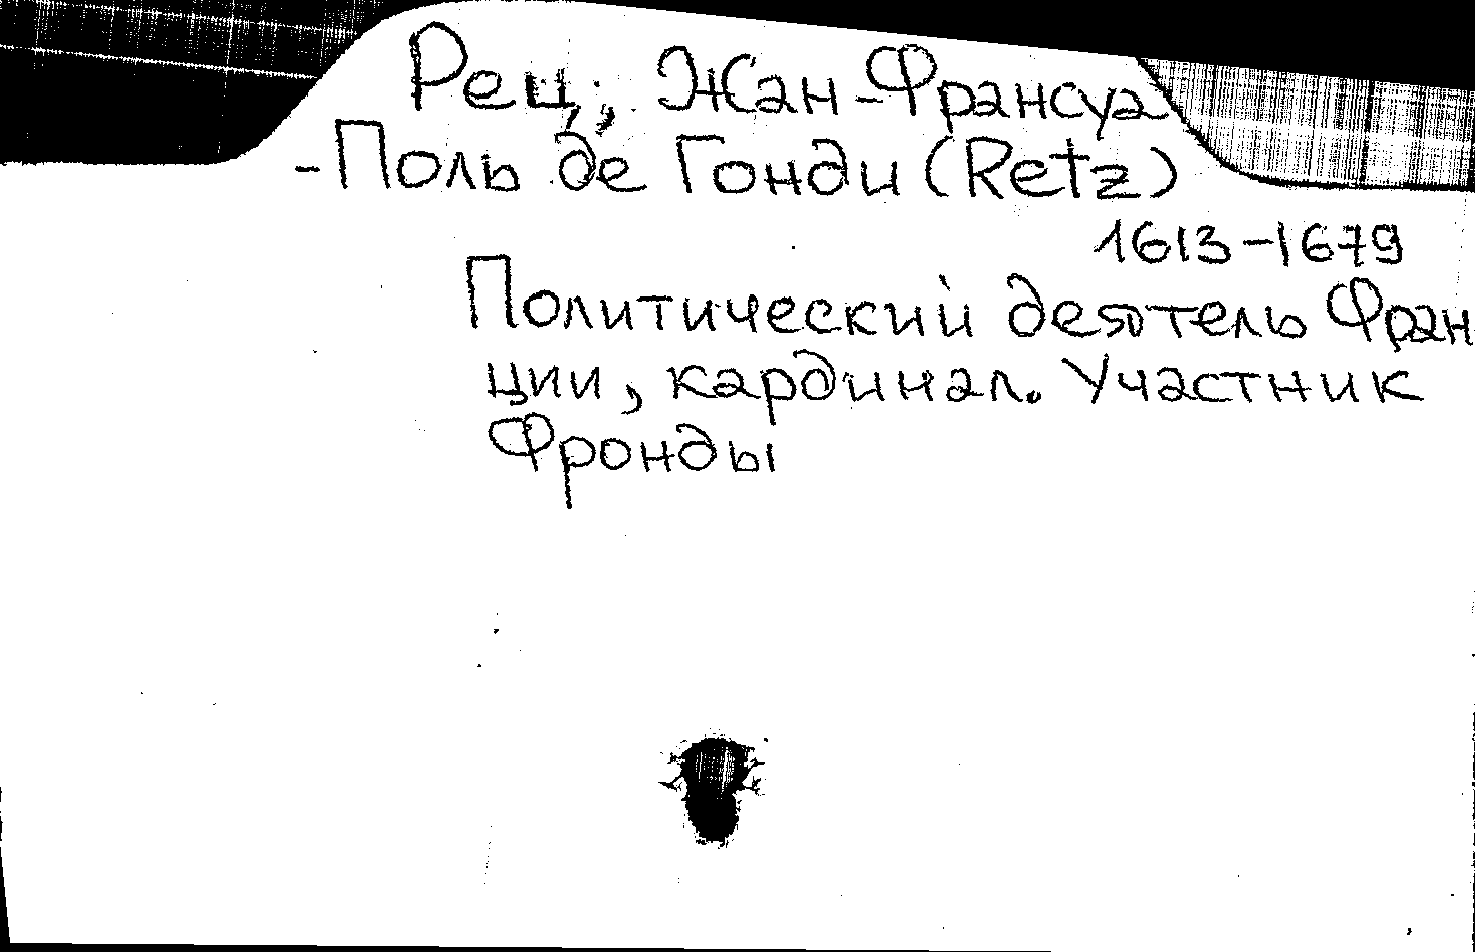 Рец, Жан-Франсуа
-Поль де Гонди (Retz)
1613-1679
Политический деятель Фран
ции, кардинал. Участник
Фронды